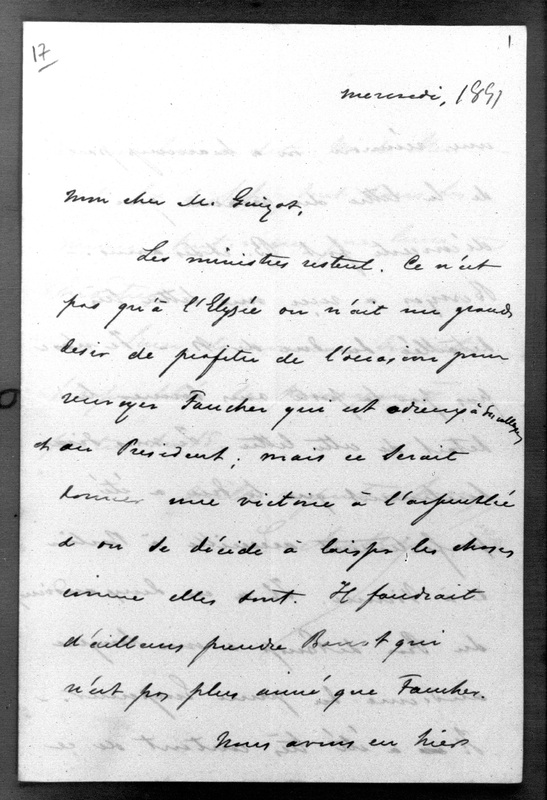 17
1
mercredi, 1851
Mon cher M. Guizot,
Les ministres restent. Ce n'est
pas qu'à l'Elysée on n'ait un grand
desir de profiter de l'occasion pour
renvoyer Faucher qui est odieux à ses collegues
et au President; mais ce serait
donner une victoire à l'assemblée
et on se décide à laisser les choses
comme elles sont. Il faudrait
d'ailleurs prendre qui
n'est pas plus aimé que Faucher.
Nous avons eu hier